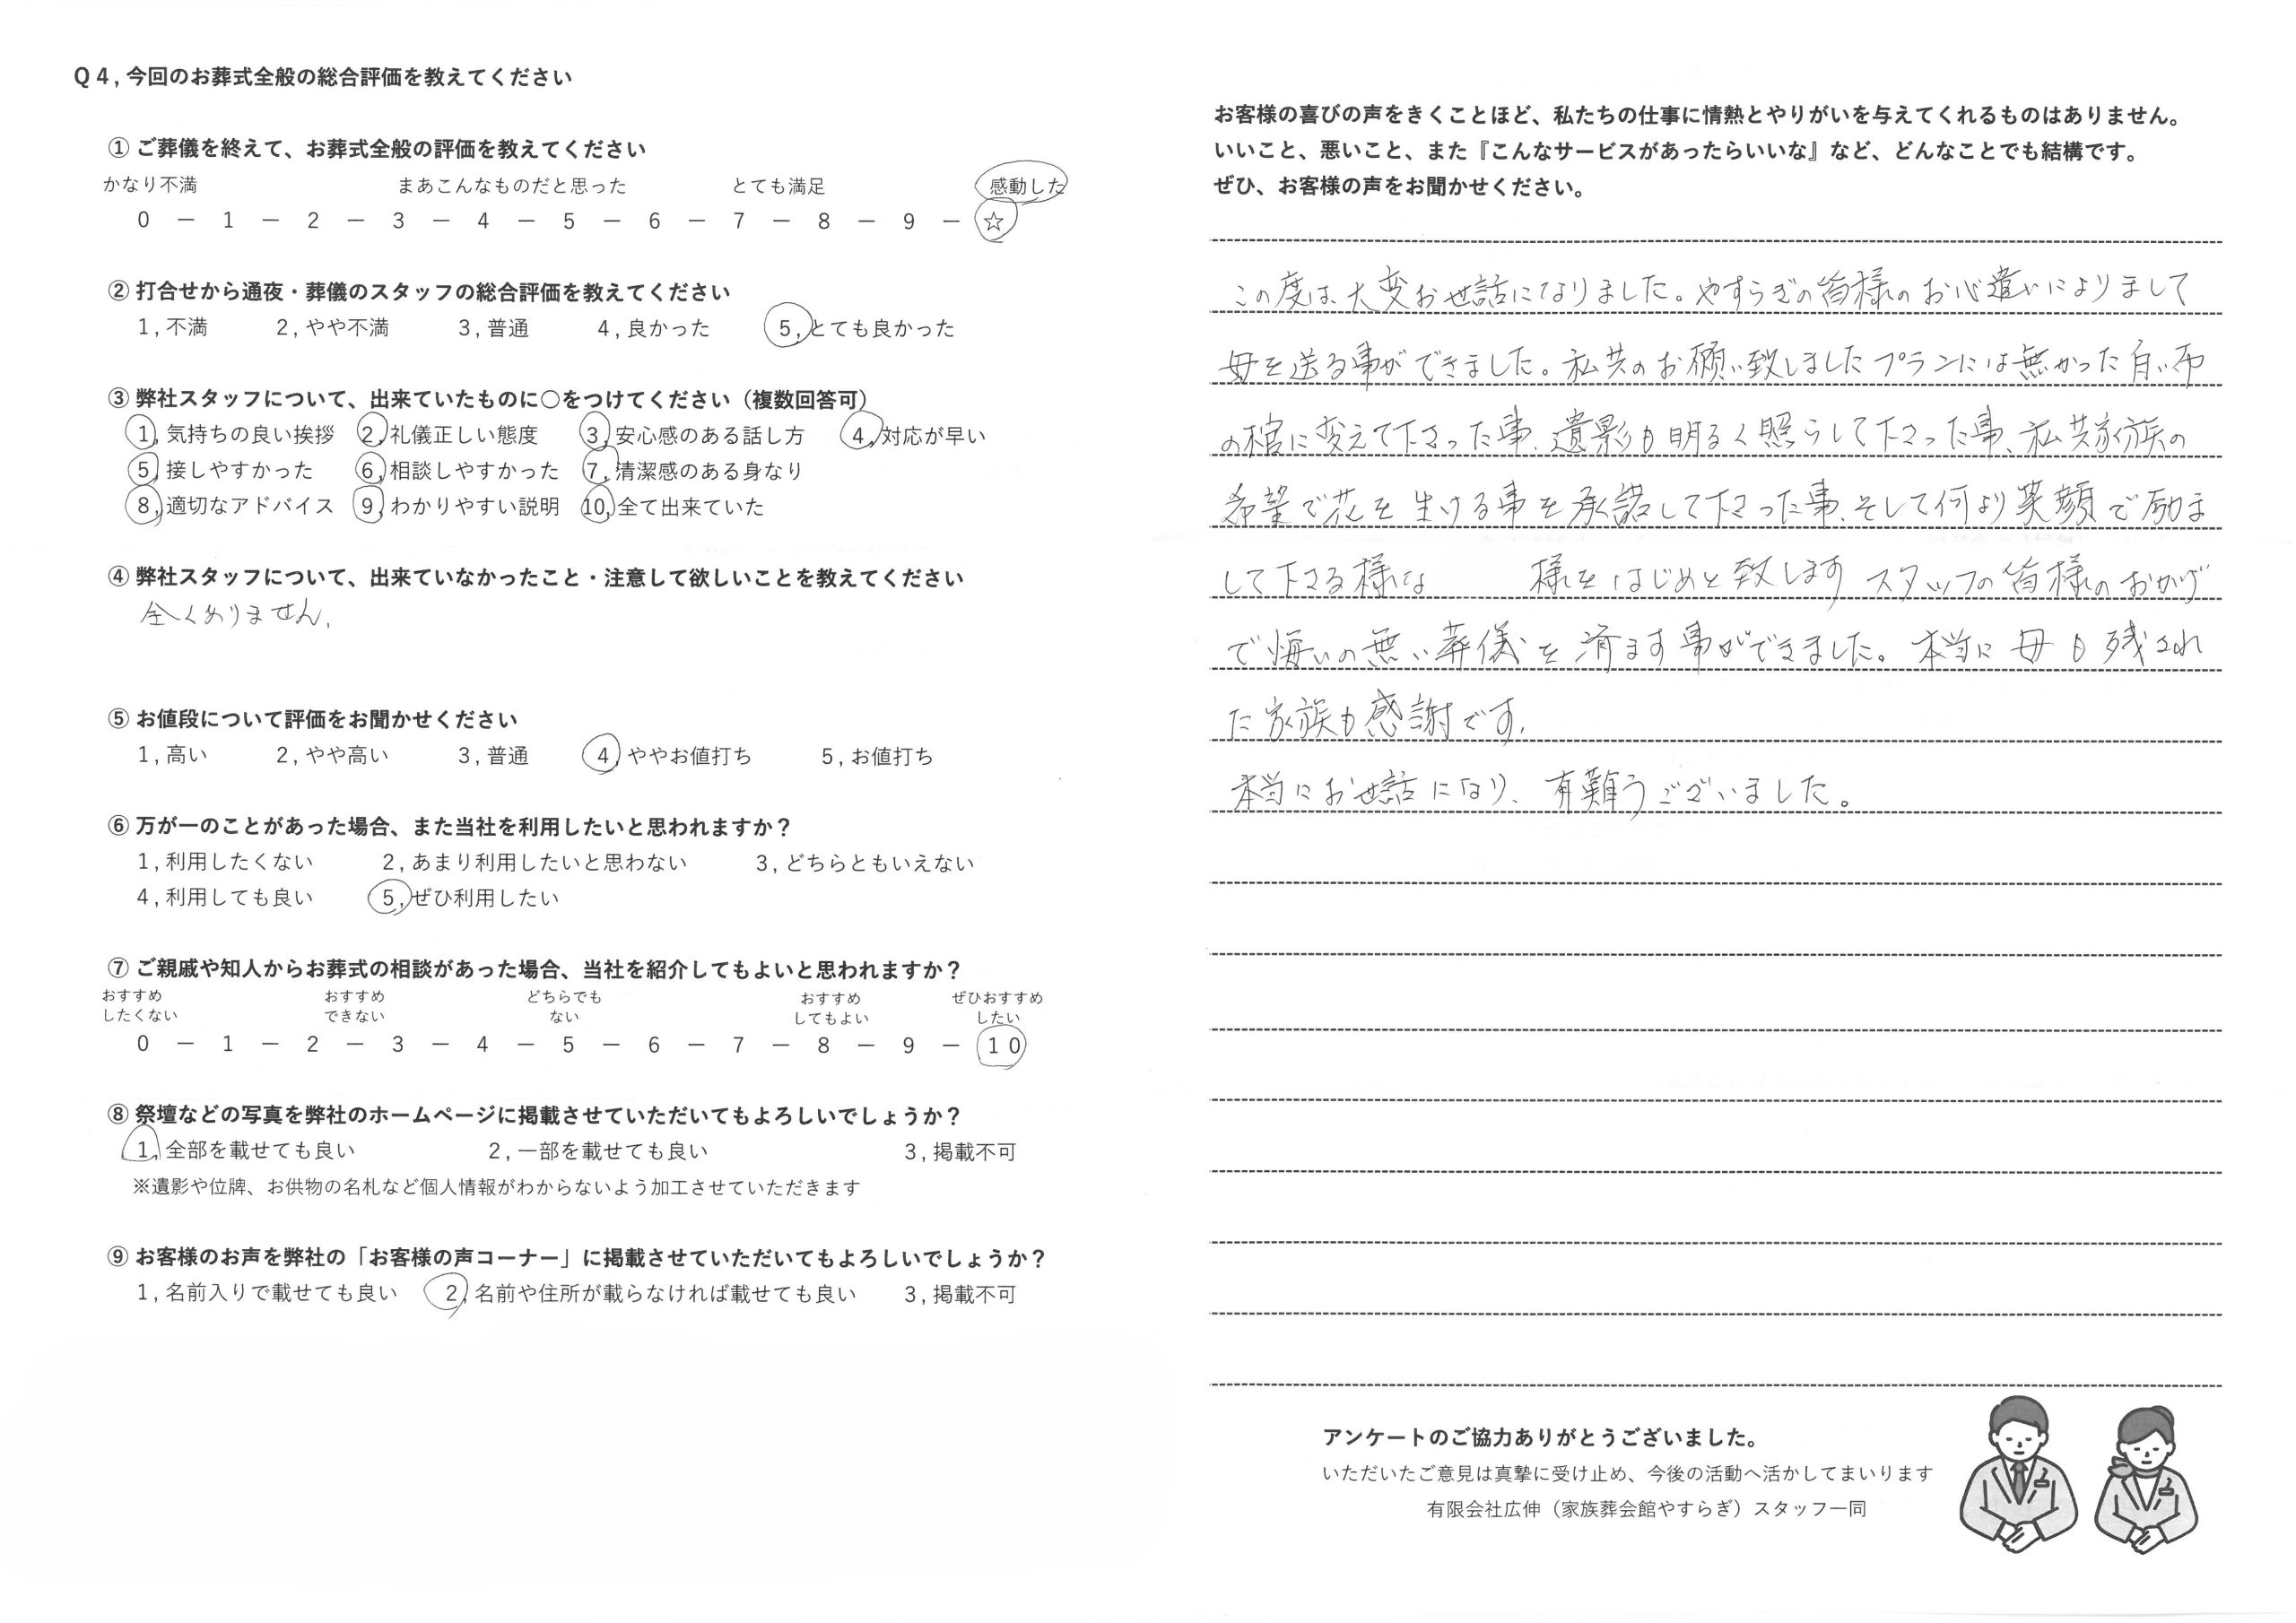 Q4, 今回のお葬式全般の総合評価を教えてください
① ご葬儀を終えて、お葬式全般の評価を教えてください
かなり不満 まあこんなものだと思った とても満足 感動した
0 − 1 − 2 − 3 − 4 − 5 − 6 − 7 − 8 − 9 − ☆
② 打合せから通夜・葬儀のスタッフの総合評価を教えてください
1, 不満 2, やや不満 3, 普通 4, 良かった 5, とても良かった
③ 弊社スタッフについて、出来ていたものに○をつけてください（複数回答可）
1, 気持ちの良い挨拶 2, 礼儀正しい態度 3, 安心感のある話し方 4, 対応が早い
5, 接しやすかった 6, 相談しやすかった 7, 清潔感のある身なり
8, 適切なアドバイス 9, わかりやすい説明 10, 全て出来ていた
④ 弊社スタッフについて、出来ていなかったこと・注意して欲しいことを教えてください
全くありません.
⑤ お値段について評価をお聞かせください
1, 高い 2, やや高い 3, 普通 4, ややお値打ち 5, お値打ち
⑥ 万が一のことがあった場合、また当社を利用したいと思われますか？
1, 利用したくない 2, あまり利用したいと思わない 3, どちらともいえない
4, 利用しても良い 5, ぜひ利用したい
⑦ ご親戚や知人からお葬式の相談があった場合、当社を紹介してもよいと思われますか？
おすすめ おすすめ どちらでも おすすめ ぜひおすすめ
したくない できない ない してもよい したい
0 − 1 − 2 − 3 − 4 − 5 − 6 − 7 − 8 − 9 − 10
⑧ 祭壇などの写真を弊社のホームページに掲載させていただいてもよろしいでしょうか？
1, 全部を載せても良い 2, 一部を載せても良い 3, 掲載不可
※遺影や位牌、お供物の名札など個人情報がわからないよう加工させていただきます
⑨ お客様のお声を弊社の「お客様の声コーナー」に掲載させていただいてもよろしいでしょうか？
1, 名前入りで載せても良い 2, 名前や住所が載らなければ載せても良い 3, 掲載不可
お客様の喜びの声をきくことほど、私たちの仕事に情熱とやりがいを与えてくれるものはありません。
いいこと、悪いこと、また『こんなサービスがあったらいいな』など、どんなことでも結構です。
ぜひ、お客様の声をお聞かせください。
この度は、大変お世話になりました。やすらぎの皆様のお心遣いによりまして
母を送る事ができました。私共のお願い致しましたプランには無かった白い布
の棺に変えて下さった事、遺影も明るく照らして下さった事、私共家族の
希望で花を生ける事を承諾して下さった事、そして何より笑顔で励ま
して下さる様な 様をはじめと致します スタッフの皆様のおかげ
で悔いの無い葬儀を済ます事ができました。本当に母も残され
た家族も感謝です.
本当にお世話になり、有難うございました。
アンケートのご協力ありがとうございました。
いただいたご意見は真摯に受け止め、今後の活動へ活かしてまいります
有限会社広伸（家族葬会館やすらぎ）スタッフ一同